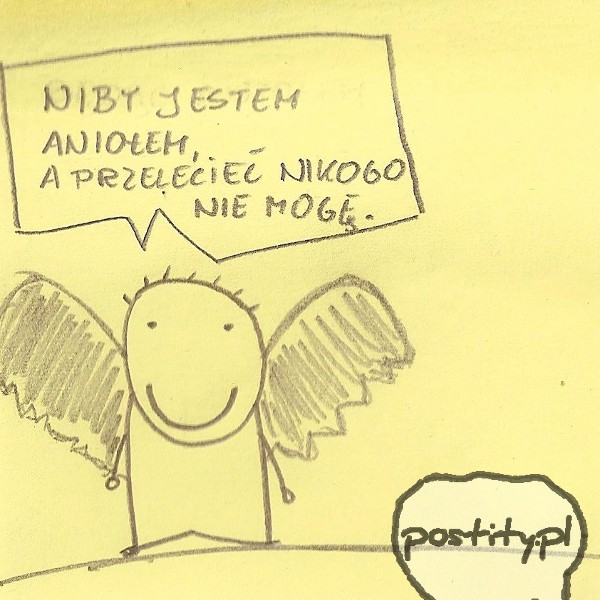 NIBY JESTEM
ANIOŁEM,
A PRZELECIEĆ NIKOGO
NIE MOGĘ.
postity.pl